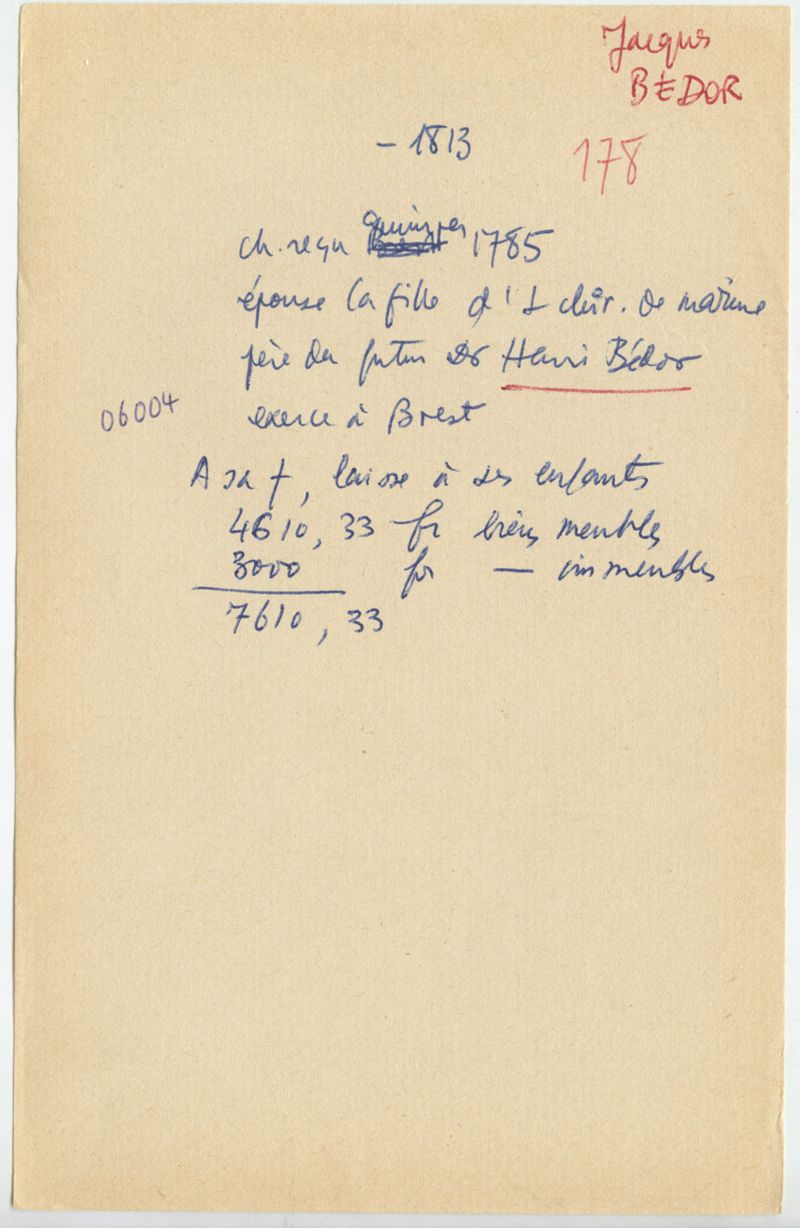 Jacques
BÉDOR
178
- 1813
ch. reçu Quimper 1785
épouse la fille d'1 chir. de marine
père du futur Dr Henri Bédor
06004
exerce à Brest
A sa †, laisse à ses enfants
4610, 33 fr biens meubles
3000 fr — immeubles
7610, 33